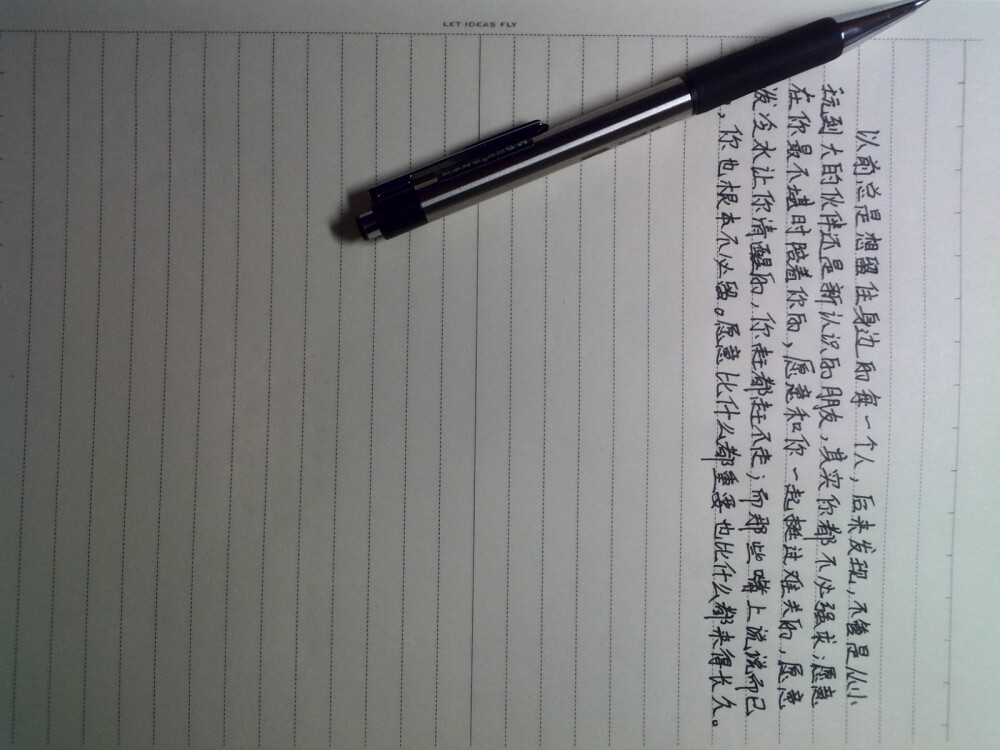 LET IDEAS FLY
以前总是想留住身边的每一个人，后来发现，不管是从小
玩到大的伙伴还是新认识的朋友，其实你都不必强求；愿意
在你最不堪时陪着你的，愿意和你一起挺过难关的，愿意
泼冷水让你清醒的，你赶都赶不走；而那些嘴上说说而已
，你也根本不必留。愿意比什么都重要也比什么都来得长久。